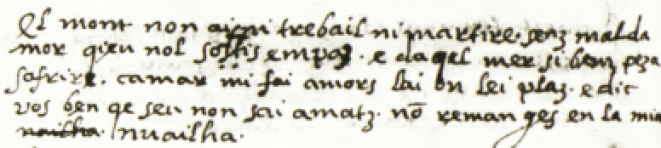 El mont non a ni trebail ni martire. senz mal da
mor qieu nol soffris em paz. e daqel mer si bem peza
sofrire. camar mi fai amors lai on lei plaz. e dic
vos ben qe seu non sai amatz. nō reman ges en la mia
nvailha.